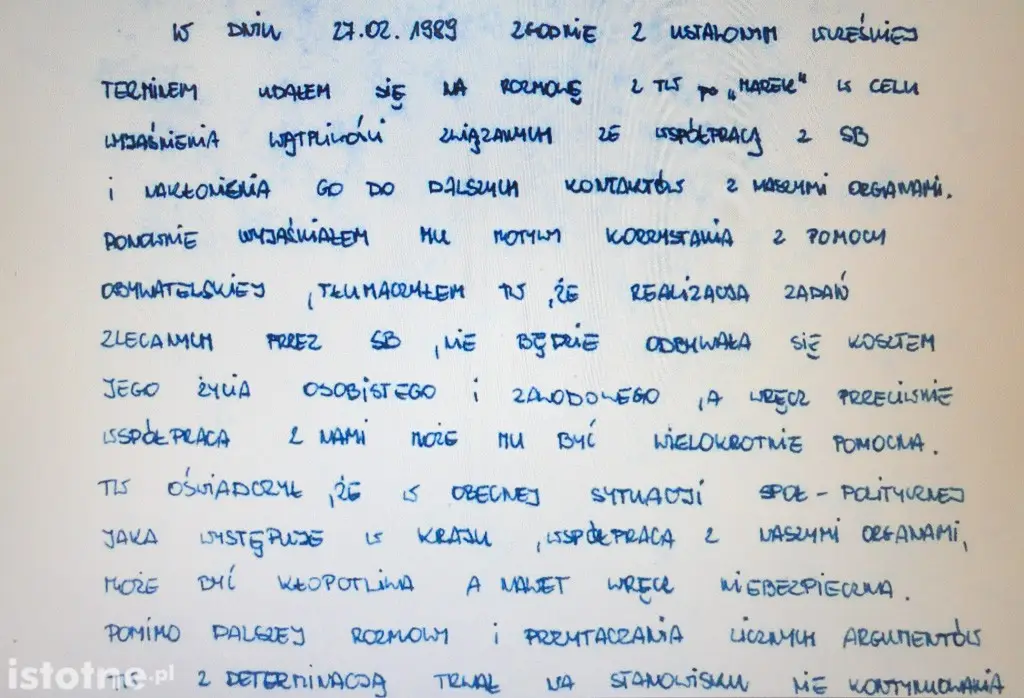 W DNIU 27.02.1989 ZGODNIE Z USTALONYM WCZEŚNIEJ
TERMINEM UDAŁEM SIĘ NA ROZMOWĘ Z TW ps „MAREK" W CELU
WYJAŚNIENIA WĄTPLIWOŚCI ZWIĄZANYCH ZE WSPÓŁPRACĄ Z SB
I NAKŁONIENIA GO DO DALSZYCH KONTAKTÓW Z NASZYMI ORGANAMI.
PONOWNIE WYJAŚNIAŁEM MU MOTYWY KORZYSTANIA Z POMOCY
OBYWATELSKIEJ, TŁUMACZYŁEM TW, ŻE REALIZACJA ZADAŃ
ZLECANYCH PRZEZ SB, NIE BĘDZIE ODBYWAŁA SIĘ KOSZTEM
JEGO ŻYCIA OSOBISTEGO I ZAWODOWEGO, A WRĘCZ PRZECIWNIE
WSPÓŁPRACA Z NAMI MOŻE MU BYĆ WIELOKROTNIE POMOCNA.
TW OŚWIADCZYŁ, ŻE W OBECNEJ SYTUACJI SPOŁ-POLITYCZNEJ
JAKA WYSTĘPUJE W KRAJU, WSPÓŁPRACA Z NASZYMI ORGANAMI,
MOŻE BYĆ KŁOPOTLIWA A NAWET WRĘCZ NIEBEZPIECZNA.
POMIMO DALSZEJ ROZMOWY I PRZYTACZANIA LICZNYCH ARGUMENTÓW
TW Z DETERMINACJĄ TRWAŁ NA STANOWISKU NIE KONTYNUOWANIA
istotne.pl